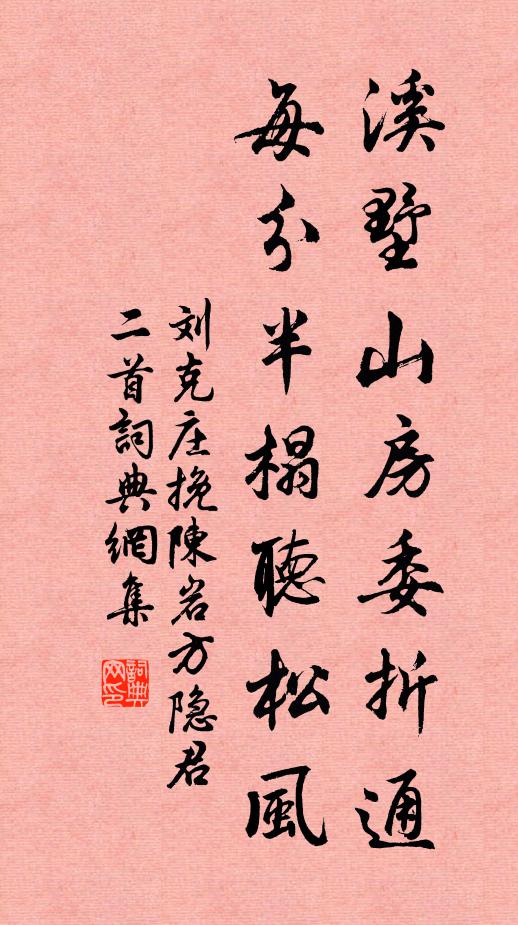 溪墅山房委折通
每分半榻聽松風
刘克庄挽陳岩方隐君
二首詞典網集
詞典网印